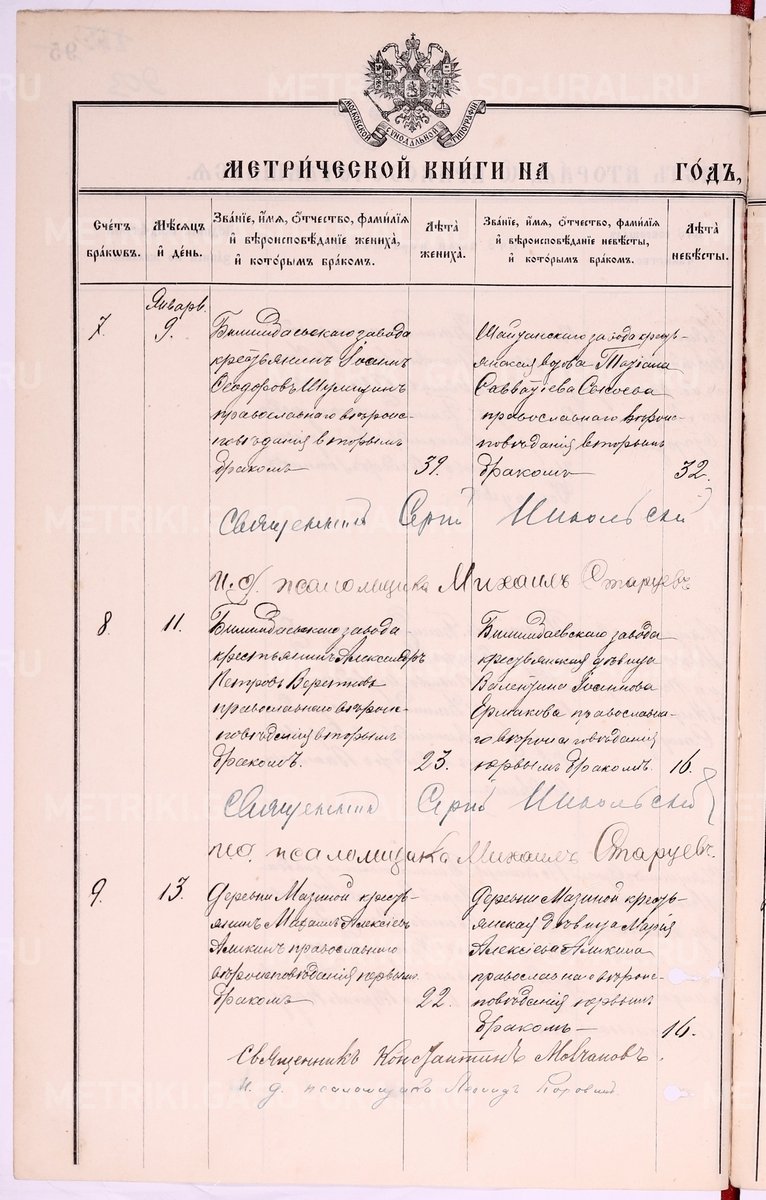 МОСКОВСКОЙ СѴНОДАЛЬНОЙ ТИПОГРАФІИ
МЕТРИ́ЧЕСКОЙ КНИ́ГИ НА ГО́ДЪ,
Сче́тъ бра́кωвъ.
Мѣ́сяцъ и҆ де́нь.
Зва́нїе, и҆́мѧ, ѻ҆́тчество, фами́лїѧ
и҆ вѣроисповѣ́данїе жениха̀,
и҆ кото́рымъ бра́комъ.
Лѣ́та жениха̀.
Зва́нїе, и҆́мѧ, ѻ҆́тчество, фами́лїѧ
и҆ вѣроисповѣ́данїе невѣ́сты,
и҆ кото́рымъ бра́комъ.
Лѣ́та невѣ́сты.
Январь
7. 9.
Билимбаевскаго завода
крестьянинъ Іоаннъ
Ѳеодоровъ
православнаго вѣроис-
повѣданія вторымъ
бракомъ 39.
Шайтанскаго завода кресть-
янская вдова Татіана
Савватіева Сысоева
православнаго вѣроис-
повѣданія вторымъ
бракомъ 32.
Священникъ Сергій Никольскій
И. д. псаломщика Михаилъ Старцевъ
8. 11.
Билимбаевскаго завода
крестьянинъ Александръ
Петровъ
православнаго вѣроис-
повѣданія вторымъ
бракомъ. 23.
Билимбаевскаго завода
крестьянская дѣвица
Валентина Іоаннова
Ермакова православна-
го вѣроисповѣданія
первымъ бракомъ. 16.
Священникъ Сергій Никольскій
И. д. псаломщика Михаилъ Старцевъ.
9. 13.
Деревни Мазиной кресть-
янинъ Михаилъ Алексіевъ
Аликинъ православнаго
вѣроисповѣданія первымъ
бракомъ 22.
Деревни Мазиной кресть-
янская дѣвица Марія
Алексіева Аликина
православнаго вѣроис-
повѣданія первымъ
бракомъ 16.
Священникъ Константинъ Молчановъ.
И. д. псаломщика Леонидъ
METRIKI.GASO-URAL.RU